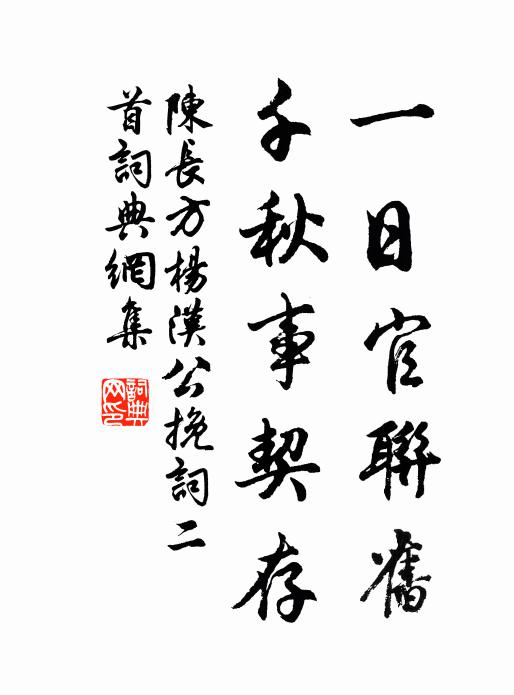 一日官聯舊
千秋事契存
陳長方楊漢公挽詞二
首詞典網集
詞典网印